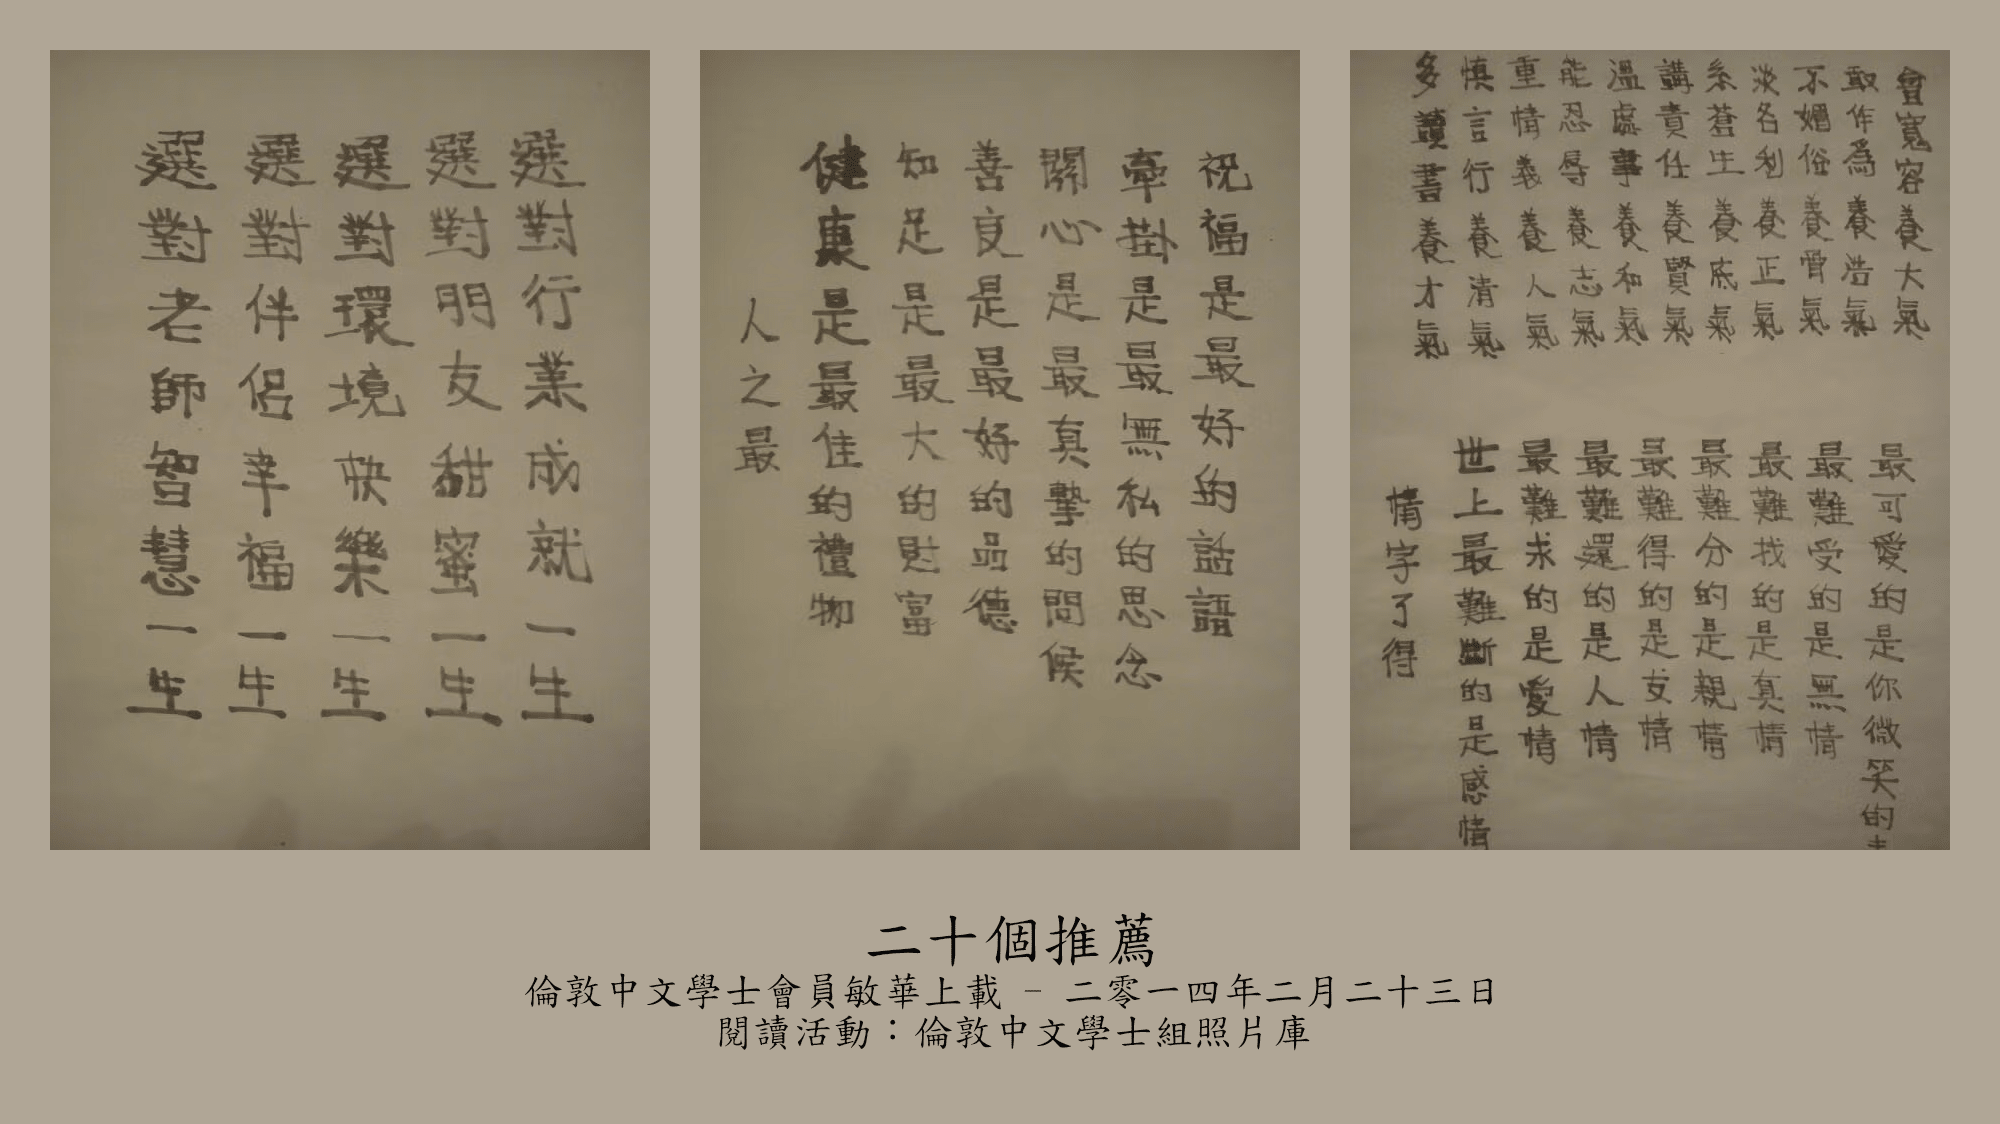 選對行業成就一生
選對朋友甜蜜一生
選對環境快樂一生
選對伴侶幸福一生
選對老師智慧一生
祝福是最好的話語
牽掛是最無私的思念
關心是最真摯的問候
善良是最好的品德
知足是最大的財富
健康是最佳的禮物
人之最
會寬容養大氣
敢作為養浩氣
不媚俗養骨氣
淡名利養正氣
系蒼生養底氣
講責任養賢氣
溫處事養和氣
能忍辱養志氣
重情義養人氣
慎言行養清氣
多讀書養才氣
最可愛的是你微笑的
最難受的是無情
最難找的是真情
最難分的是親情
最難得的是友情
最難還的是人情
最難求的是愛情
世上最難斷的是感情
情字了得
二十個推薦
倫敦中文學士會員敏華上載 – 二零一四年二月二十三日
閱讀活動：倫敦中文學士組照片庫